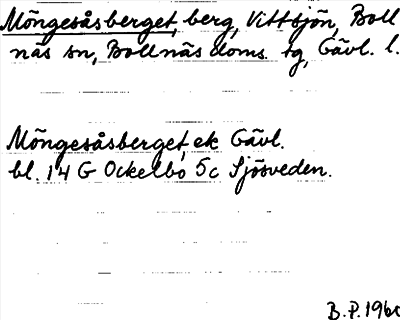 Möngesåsberget, berg, Vittsjön, Boll
näs sn, Bollnäs doms. tg, Gävl. l.
Möngesåsberget, ek Gävl.
bl. 14 G Ockelbo 5c Sjösveden.
B.P. 1960